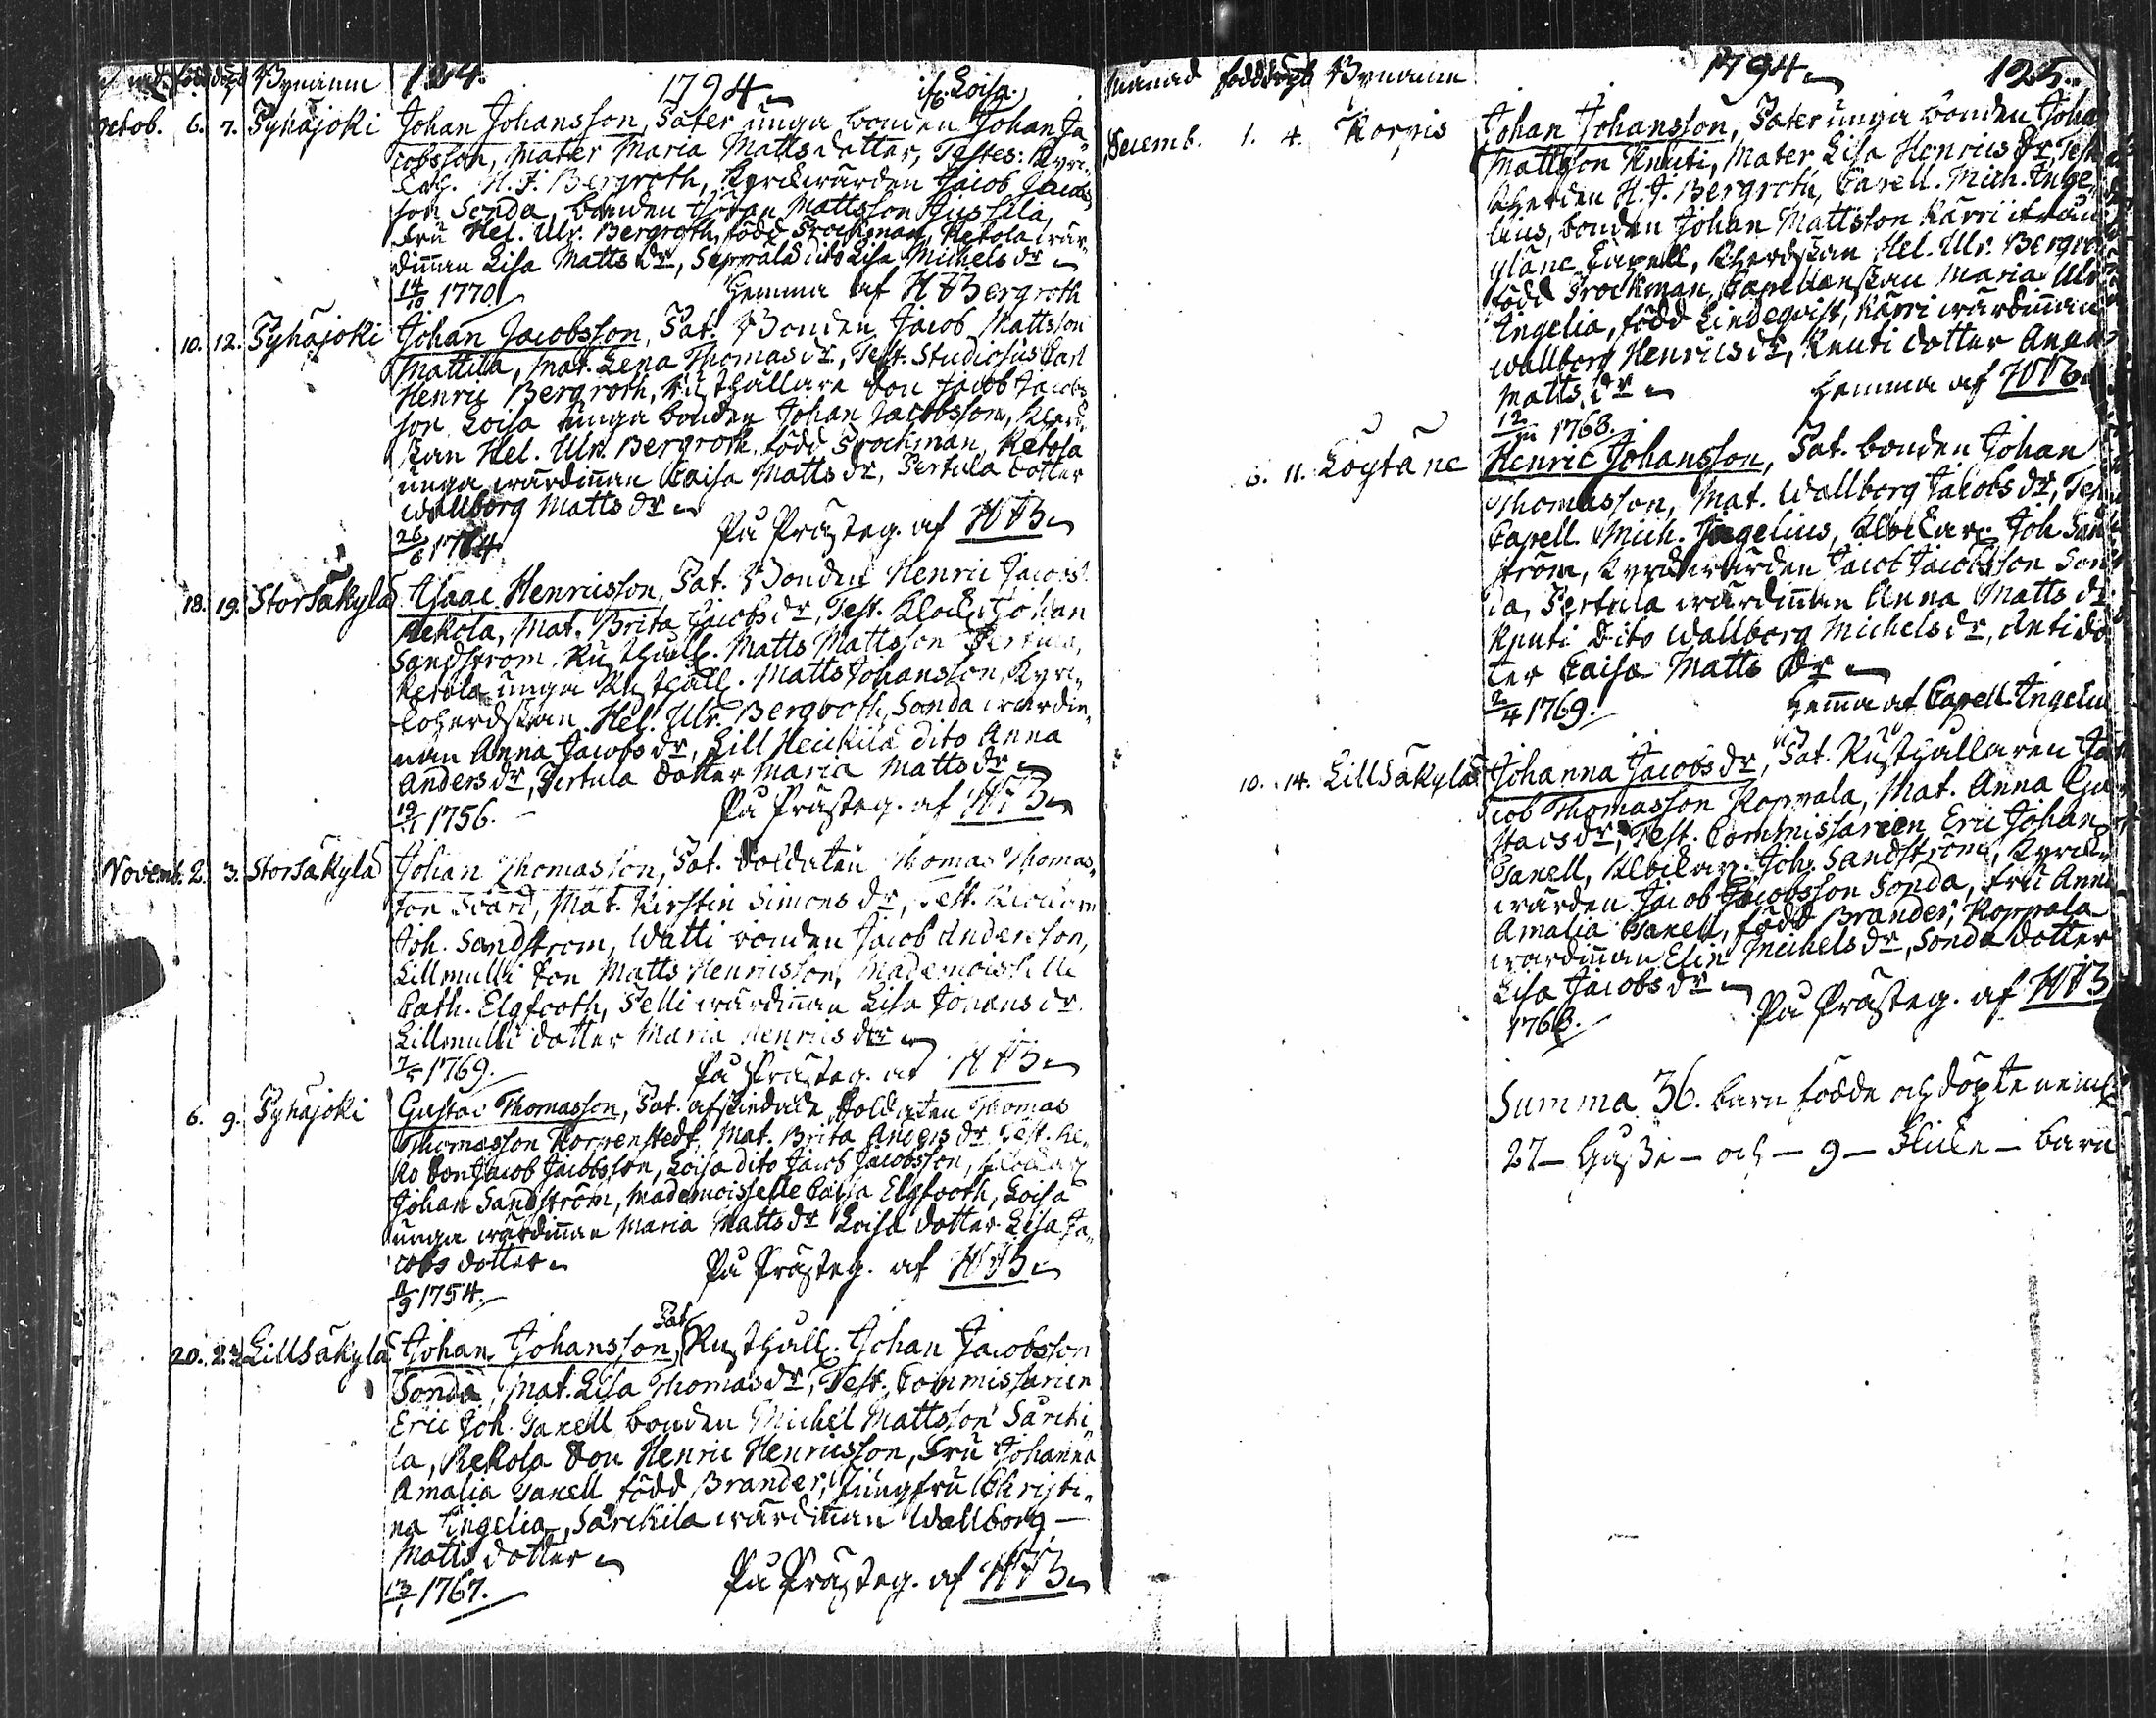 född Bynamn 124. 1794 if. Loisa.
octob. 6. 7. Pyhäjoki Johan Johansson, Pater unga bonden Johan Ja
cobsson, Mater Maria Matts dotter, Testes: Kyrc-
H. J. Bergroth, Kyrckwärden Jacob Jacobs
son Sonda, bonden Johan Mattsson Jussila,
Fru Hel. Ulr. Bergroth, född Frockman, Rekola wär-
dinnan Lisa Matts dr, Seppälä dito Lisa Michels dr
14/10 1770 Hemma af H Bergroth
10. 12. Pyhäjoki Johan Jacobsson, Pat. Bonden Jacob Mattsson
Mattila, Mat. Lena Thomas dr, Test. Studiosus Carl
Henric Bergroth, Rusthållare Son Jacob Jacobs
son Loisa unga bonden Johan Jacobsson,
Hel. Ulr. Bergroth född Frockman, Rekola
unga wärdinnan Caisa Matts dr, Pertula dotter
Wallborg Matts dr
26/6 1764 På Prästeg. af HJB
18. 19. Storsäkylä Isaac Henricsson, Pat. Bonden Henric Jacobs.
Rekola, Mat. Brita Jacobs dr, Test. Klock. Johan
Sandström, Rusthåll. Matts Mattsson Pertula,
Rekola unga Rusthåll. Matts Johansson, Kyrc-
koherdskan Hel. Ulr. Bergroth, Sonda wärdin-
nan Anna Jacobs dr, Lill Heickilä dito Anna
Anders dr, Pertula dotter Maria Matts dr
1756. På Prästeg. af HJB
Novemb. 2. 3. Storsäkylä Johan Thomasson, Pat. Soldaten Thomas Thomas-
son Svärd, Mat. Kirstin Simons dr, Test. Klockaren
Joh. Sandström, Watti bonden Jacob Andersson,
Lillmulli Son Matts Henricsson, Mademoiselle
Cath. Elgfooth, Pelli wärdinnan Lisa Johans dr.
Lillmulli dotter Maria Henrics dtr
1769. På Prästeg. af HJB
6. 9. Pyhäjoki Gustav Thomasson, Pat. afskedade Soldaten Thomas
Thomasson Korpenstedt, Mat. Brita Anders dr. Test. Re-
ko Son Jacob Jacobsson, Loisa dito Jacob Jacobsson,
Johan Sandström, Mademoisselle Caisa Elgfooth, Loisa
unga wärdinnan Maria Matts dr Loisa dotter Lisa Ja-
cobs dotter På Prästeg. af HJB
8/9 1754.
20. 23. Lillsäkylä Johan Johansson, Pat. Rusthåll. Johan Jacobsson
Sonda, Mat. Lisa Thomas dr, Test. Commissarien
Eric Joh. Tanell bonden Michel Mattsson Särcki-
la, Rekola Son Henric Henricsson, Fru Johanna
Amalia Tanell född Brander, Jungfru Christi-
na Ingelia, Särckilä wärdinnan Wallborg
Matts dotter
13/1 1767. På Prästeg. af HJB
månad född Bynamn 1794 125.
Decemb. 1. 4. Korpis Johan Johansson, Pater unga bonden Joha
Mattsson Knuti, Mater Lisa Henrics dr, Test
H. J. Bergroth, Capell. Mich. Inge-
lius, bonden Johan Mattsson Kärri
Hel. Ulr. Bergro
född Frockman, Capellanskan Maria Ulr
Ingelia, född Lindeqvist, Kärri wärdinnan
Wallborg Henrics dr, Knuti dotter Anna
Matts dr Hemma af HJB
1763.
11. Löytäne Henric Johansson, Pat. bonden Johan
Thomasson, Mat. Wallborg Jacobs dr, Test
Capell. Mich. Ingelius, Klockar. Joh San
ström, Kyrckwärden Jacob Jacobsson Son
da, Pertula wärdinnan Anna Matts dr
Knuti Dito Wallborg Michels dr, Anti do
ter Caisa Matts dr
1769. Hemma af Capell. Ingeliu
10. 14. Lillsäkylä Johanna Jacobs dr, Pat. Rusthållaren Ja
cob Thomasson Koppala, Mat. Anna Gu
stavs dr, Test. Commissarien Eric Johan
Tanell, Klockar. Joh. Sandström, Kyrck-
wärden Jacob Jacobsson Sonda, Fru Anna
Amalia Tanell, född Brander, Koppala
wärdinnan Elin Michels dr, Sonda dotter
Lisa Jacobs dr På Prästeg. af HJB
1763.
Summa 36. barn födde och döpte neml.
27 – Gosse – och – 9 – Flicke – barn